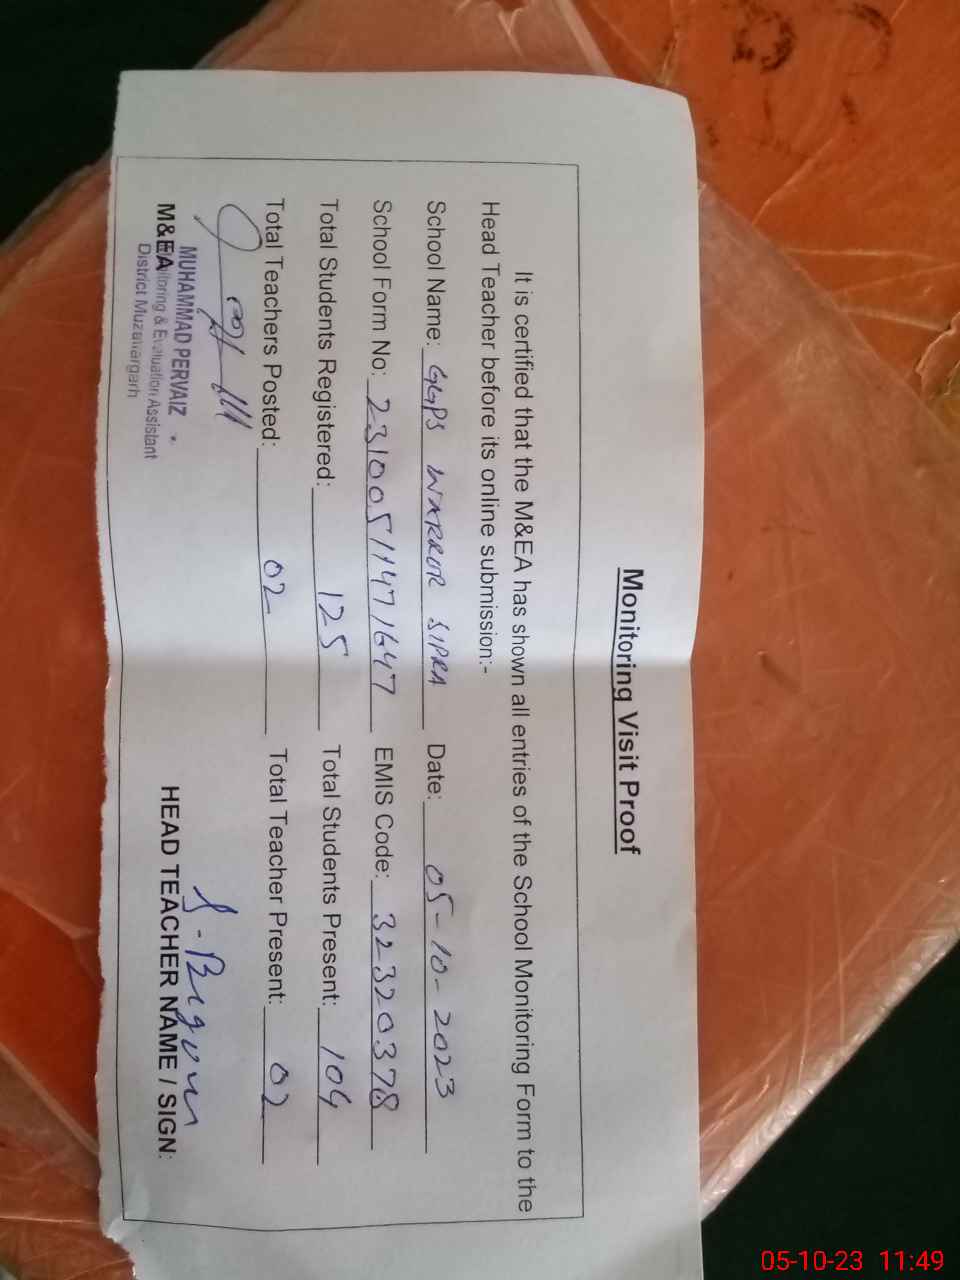 Monitoring Visit Proof
It is certified that the M&EA has shown all entries of the School Monitoring Form to the
Head Teacher before its online submission:-
School Name: GGPS WARROR SIPRA Date: 05-10-2023
School Form No: 23100511471647 EMIS Code: 32320378
Total Students Registered: 125 Total Students Present: 104
Total Teachers Posted: 02 Total Teacher Present: 02
S-Begum
MUHAMMAD PERVAIZ
M&EA
Monitoring & Evaluation Assistant
District Muzaffargarh
HEAD TEACHER NAME / SIGN:
05-10-23 11:49